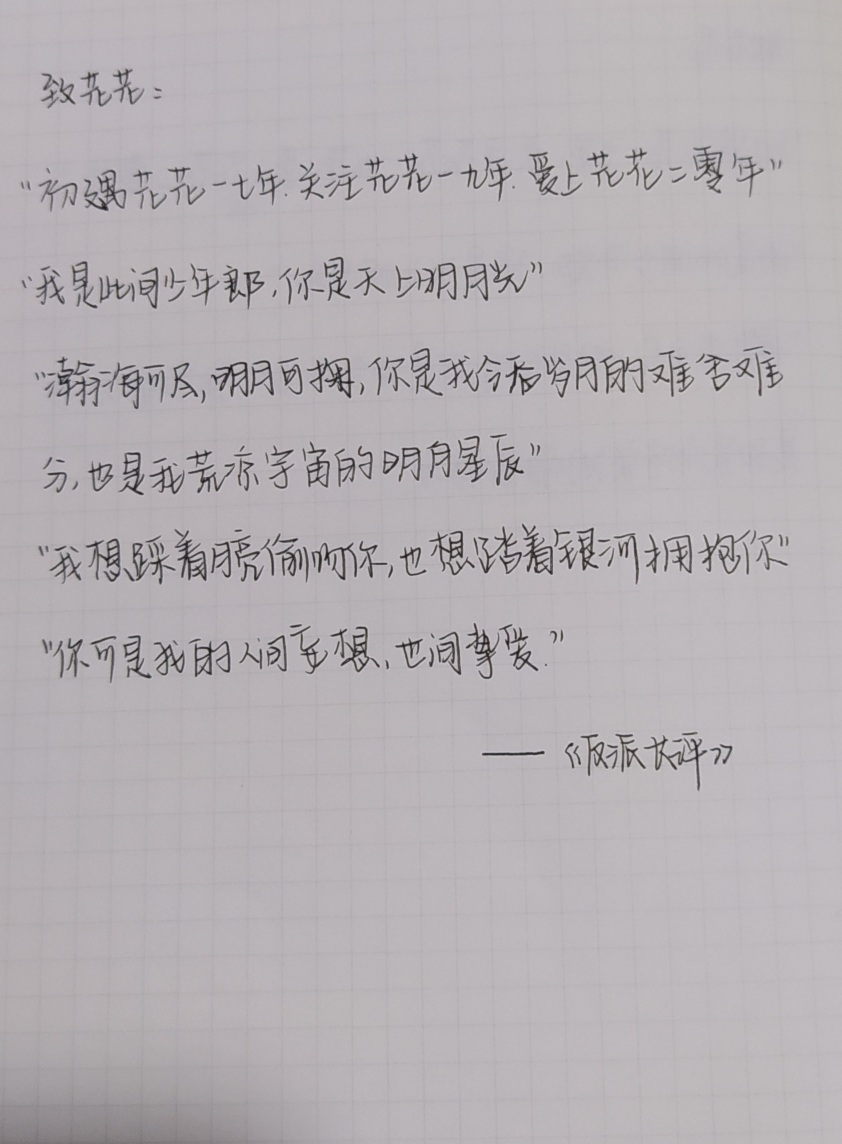 致花花：
“初遇花花一七年.关注花花一九年.爱上花花二零年”
“我是此间少年郎,你是天上明月光”
“瀚海可尽,明月可掬,你是我今后岁月的难舍难
分,也是我荒凉宇宙的明月星辰”
“我想踩着月亮偷吻你,也想踏着银河拥抱你”
“你可是我的人间妄想,世间挚爱.”
——《反派长评》